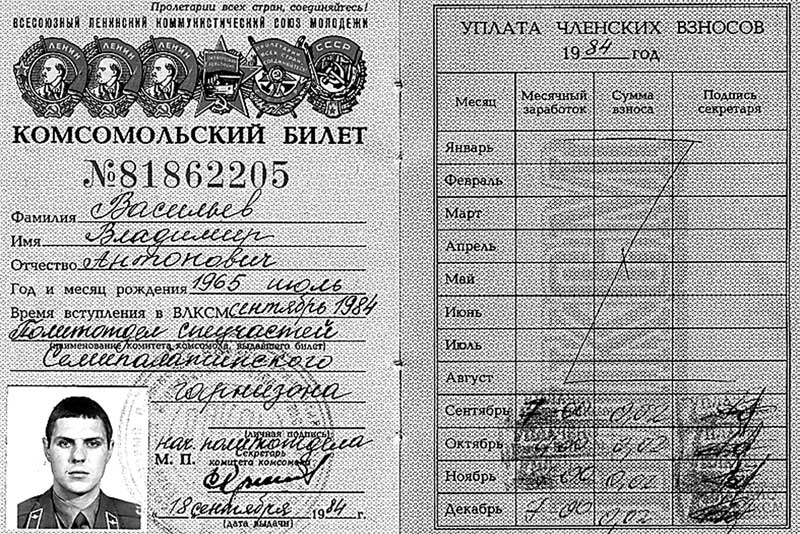 Пролетарии всех стран, соединяйтесь!
ВСЕСОЮЗНЫЙ ЛЕНИНСКИЙ КОММУНИСТИЧЕСКИЙ СОЮЗ МОЛОДЕЖИ
ЛЕНИН ЛЕНИН ЛЕНИН СССР
КОМСОМОЛЬСКИЙ БИЛЕТ
№81862205
Фамилия Васильев
Имя Владимир
Отчество Антонович
Год и месяц рождения 1965 июль
Время вступления в ВЛКСМ сентябрь 1984
Политотдел спецчастей
(наименование комитета комсомола, выдавшего билет)
Семипалатинского
гарнизона
(личная подпись)
нач. политотдела
М. П. Секретарь
комитета комсомола
18 сентября 1984 г.
(дата выдачи)
УПЛАТА ЧЛЕНСКИХ ВЗНОСОВ
1984 год
Месяц Месячный заработок Сумма взноса Подпись секретаря
Январь
Февраль
Март
Апрель
Май
Июнь
Июль
Август
Сентябрь 7-00 0,02
Октябрь 7-00 0,02
Ноябрь 7-00 0,02
Декабрь 7-00 0,02